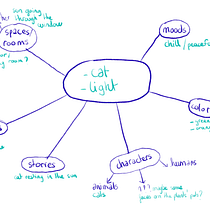 sun going
through the
window
spaces/
rooms
room?
moods
chill / peaceful
- cat
- light
color
stories
cat resting in the sun
characters
humans
animals
cats
???
maybe some
faces on the plants' pots?